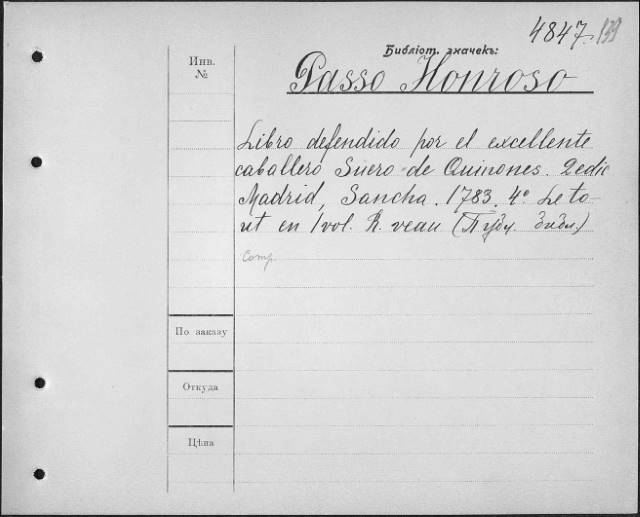 4847. 139
Библіот. значекъ:
Инв.
№
Passo Honroso
Libro defendido por el excellente
caballero Suero de Quinones. 2 edic
Madrid, Sancha. 1783. 4º Le to-
ut en 1 vol. R. veau (Публ. библ.)
Comp.
По заказу
Откуда
Цѣна